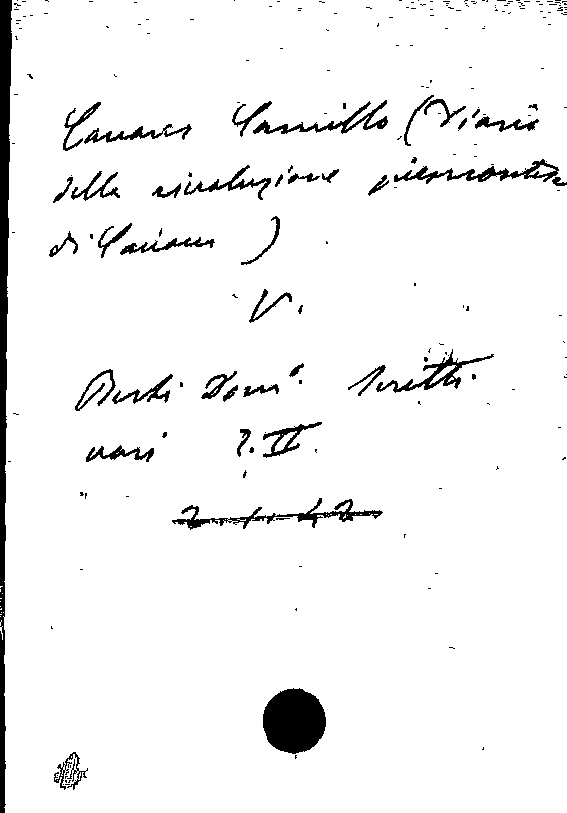 Cavour Camillo (Diario
della rivoluzione piemontese
di Cavour)
V.
Berti Dom.º Scritti
vari 2. II.
2. 1. 42